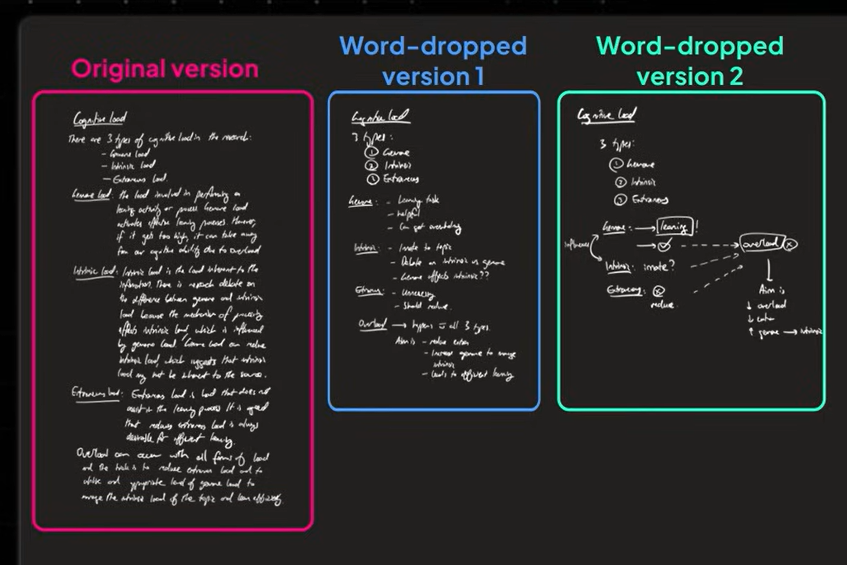 Original version
Cognitive load
There are 3 types of cognitive load in the research:
- Germane load
- Intrinsic load
- Extraneous load
Germane load: the load involved in performing a
learning activity or process. Germane load
activates effective learning processes. However,
if it gets too high, it can take away
from our cognitive ability due to overload
Intrinsic load: Intrinsic load is the load inherent to the
information. There is research debate on
the difference between germane and intrinsic
load because the mechanism of processing
effects intrinsic load, which is influenced
by germane load. Germane load can reduce
intrinsic load, which suggests that intrinsic
load may not be inherent to the source.
Extraneous load: Extraneous load is load that does not
assist in the learning process. It is agreed
that reducing extraneous load is always
desirable for efficient learning.
Overload can occur with all forms of load
and the trick is to reduce extraneous load and to
utilise an appropriate level of germane load to
manage the intrinsic load of the topic and learn efficiently.
Word-dropped
version 1
Cognitive load
3 types:
① Germane
② Intrinsic
③ Extraneous
Germane: - Learning task
- Helpful
- Can get overloading
Intrinsic: - Innate to topic
- Debate on intrinsic vs germane
- Germane effects intrinsic??
Extraneous: - Unnecessary
- Should reduce.
Overload → happens all 3 types.
Aim is - reduce extran
- Increase germane to manage
intrinsic
- Leads to efficient learning
Word-dropped
version 2
Cognitive load
3 types:
① Germane
② Intrinsic
③ Extraneous
Germane: → learning!
influences
overload
Intrinsic: innate?
Extraneous:
reduce.
Aim is
↓ overload
↓ extran
↑ germane → intrinsic